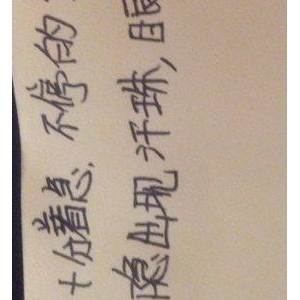 十分着急，不停的
隐出现汗珠，眼